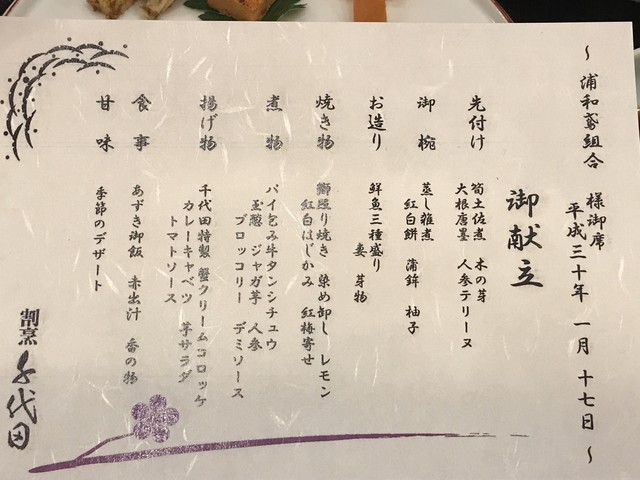 ～ 浦和鳶組合 様御席
平成三十年 一月 十七日 ～
御献立
先付け 筍土佐煮 木の芽
大根唐墨 人参テリーヌ
御椀 蒸し雑煮
紅白餅 蒲鉾 柚子
お造り 鮮魚三種盛り
妻 芽物
焼き物 鰤照り焼き 染め卸し レモン
紅白はじかみ 紅梅寄せ
煮物 パイ包み牛タンシチュウ
玉葱 ジャガ芋 人参
ブロッコリー デミソース
揚げ物 千代田特製 蟹クリームコロッケ
カレーキャベツ 芋サラダ
トマトソース
食事 あずき御飯 赤出汁 香の物
甘味 季節のデザート
割烹 千代田